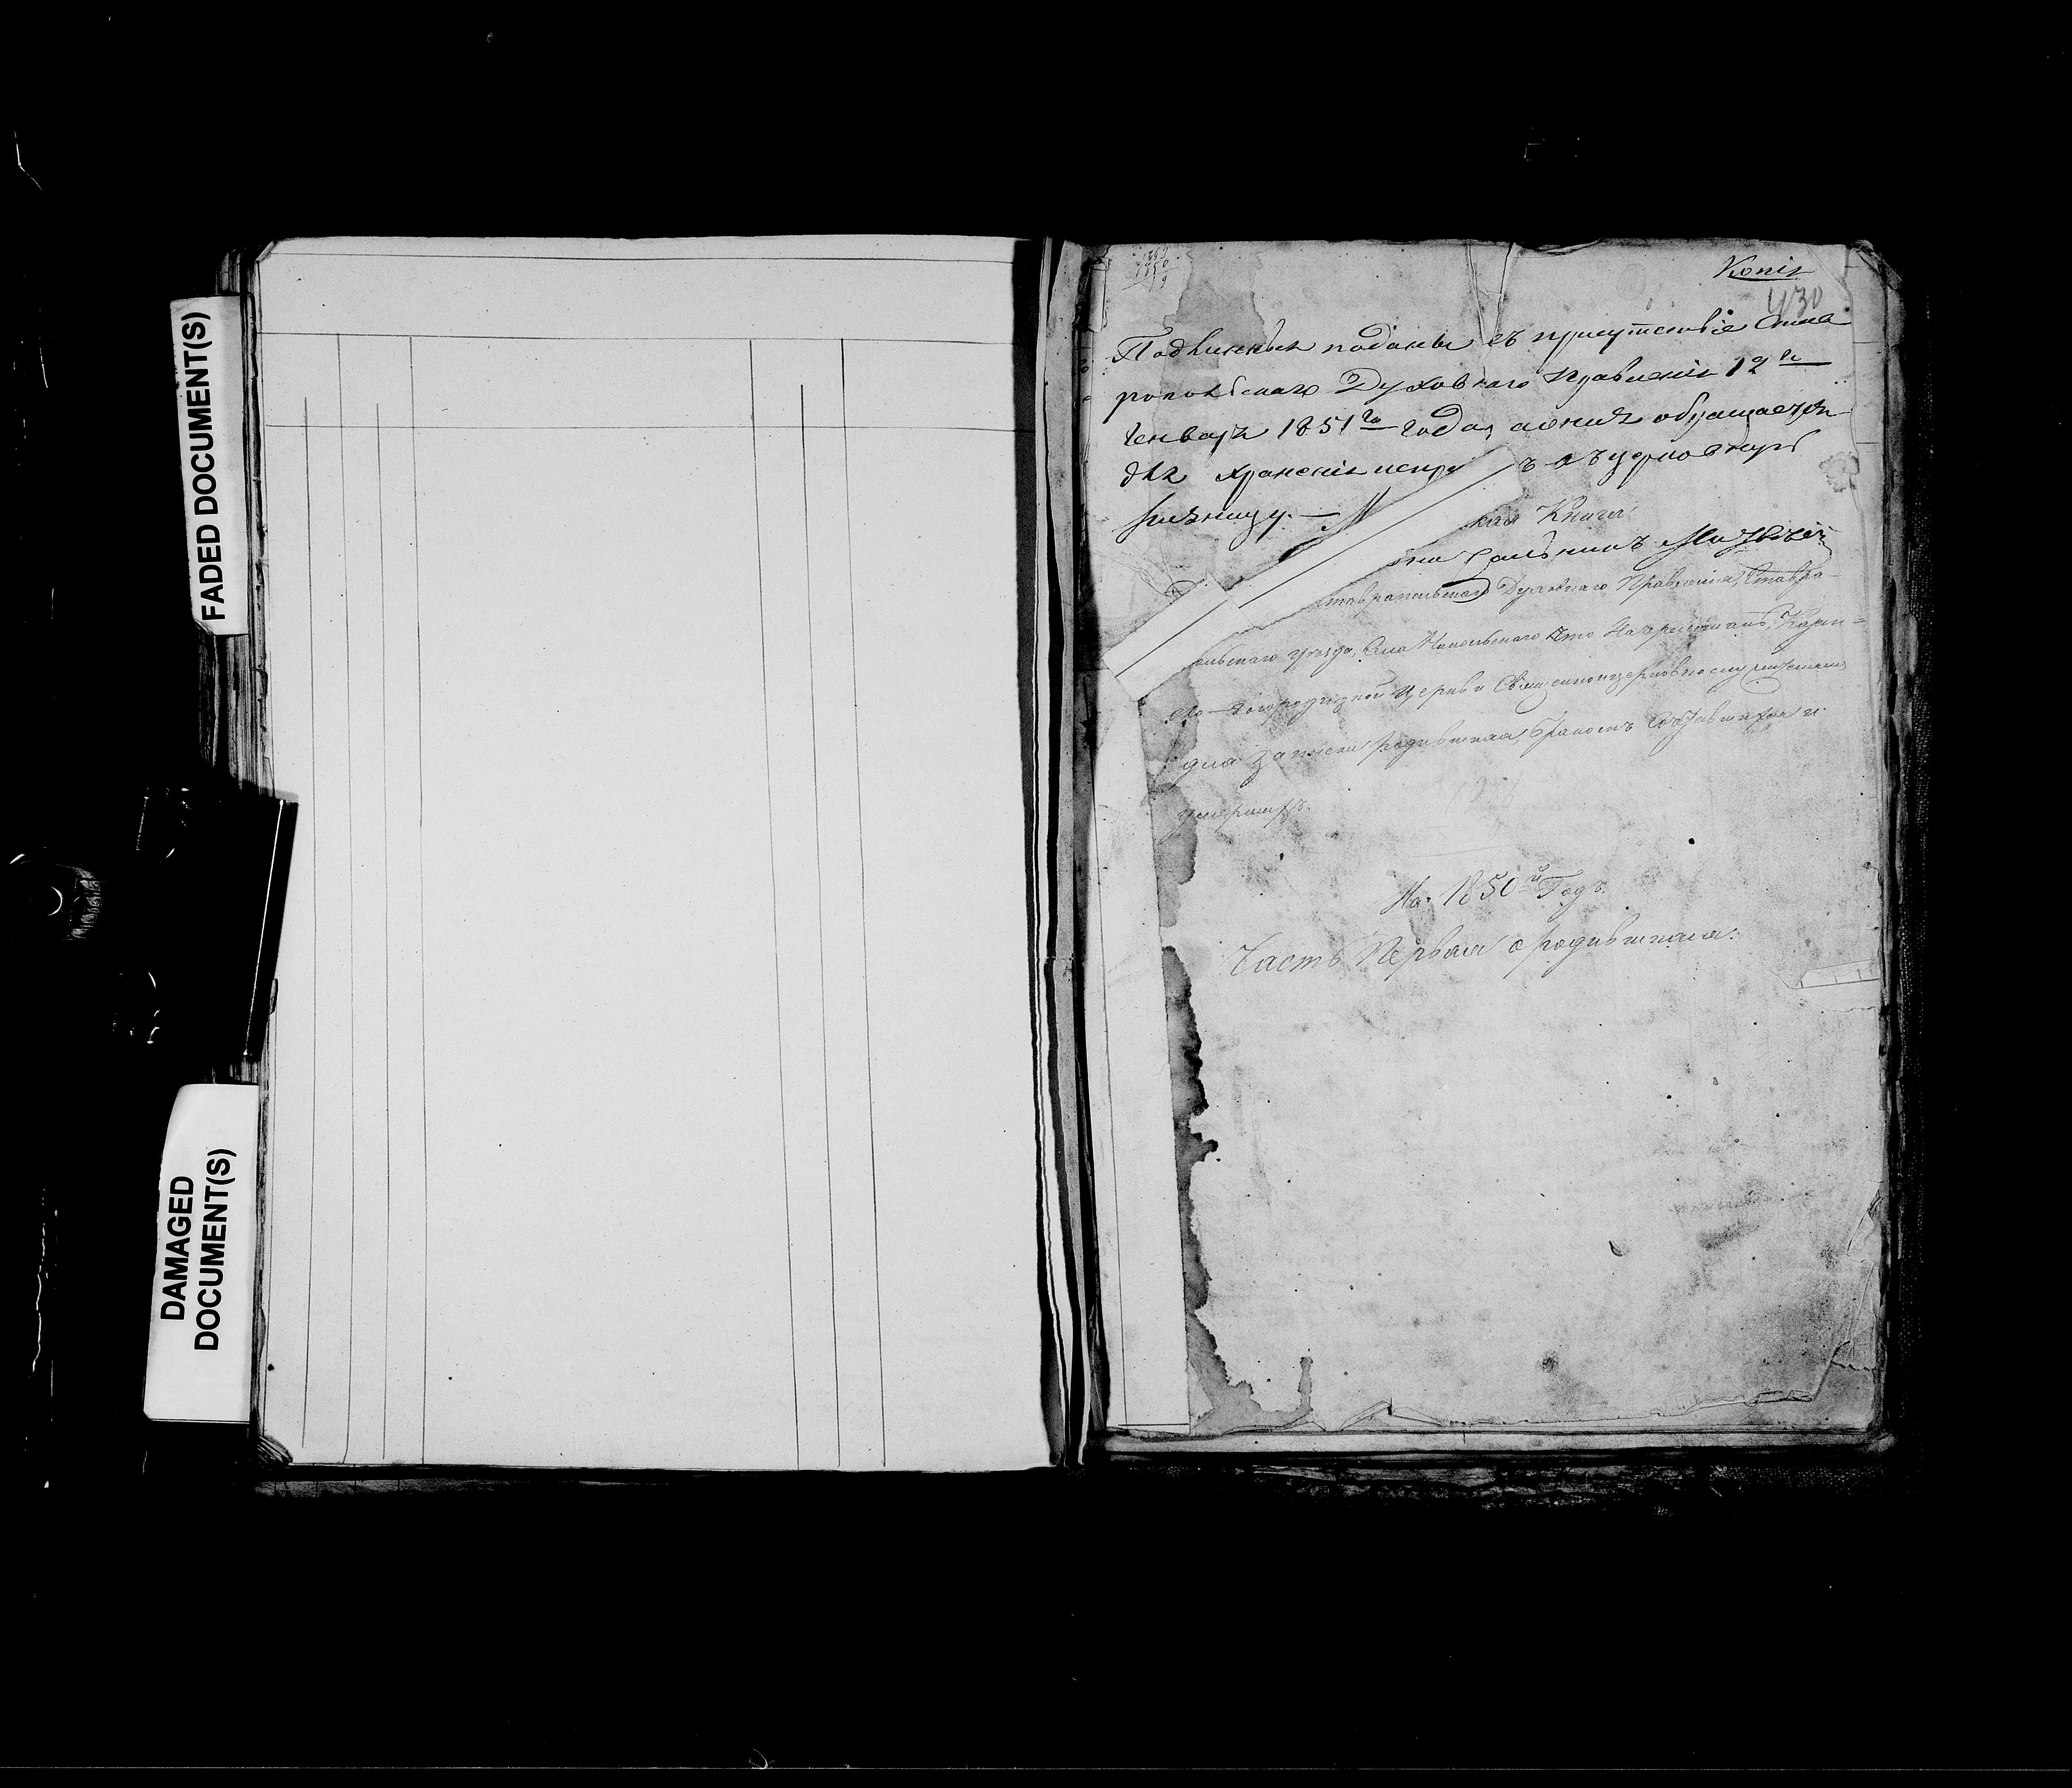 FADED DOCUMENT(S)
DAMAGED
DOCUMENT(S)
Копія
430
Подлинныя поданы въ присутствіе Ставро
польскаго Духовнаго Правленія 12го
Генваря 1851го года, а сія обращается
для храненія въ церковную
ризницу. —
Книга
Ставропольскаго Духовнаго Правленія, Ставро-
польскаго уѣзда, Села Никольскаго Казан=
ско-Богородицкой Церкви Священноцерковнослужителямъ
для записки родившихся, бракомъ сочетавшихся и
умершихъ.
На 1850й Годъ.
Часть Первая о родившихся: